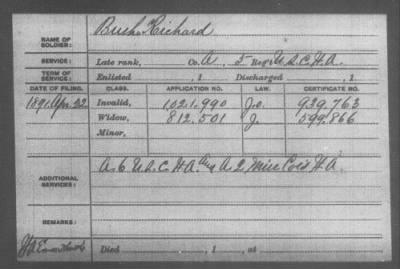 NAME OF SOLDIER: Richard
SERVICE: Late rank, Co. A, 5 Reg't U.S.C.H.A.
TERM OF SERVICE: Enlisted , 1 Discharged , 1
DATE OF FILING. CLASS. APPLICATION NO. LAW. CERTIFICATE NO.
1891 Apr. 22 Invalid, 1021.990 J.o. 939.763
Widow, 812.501 J. 599.866
Minor,
ADDITIONAL SERVICES: A. 6 U.S.C.H.A. and A. 2 Miss Cold H.A.
REMARKS:
Died , 1 , at